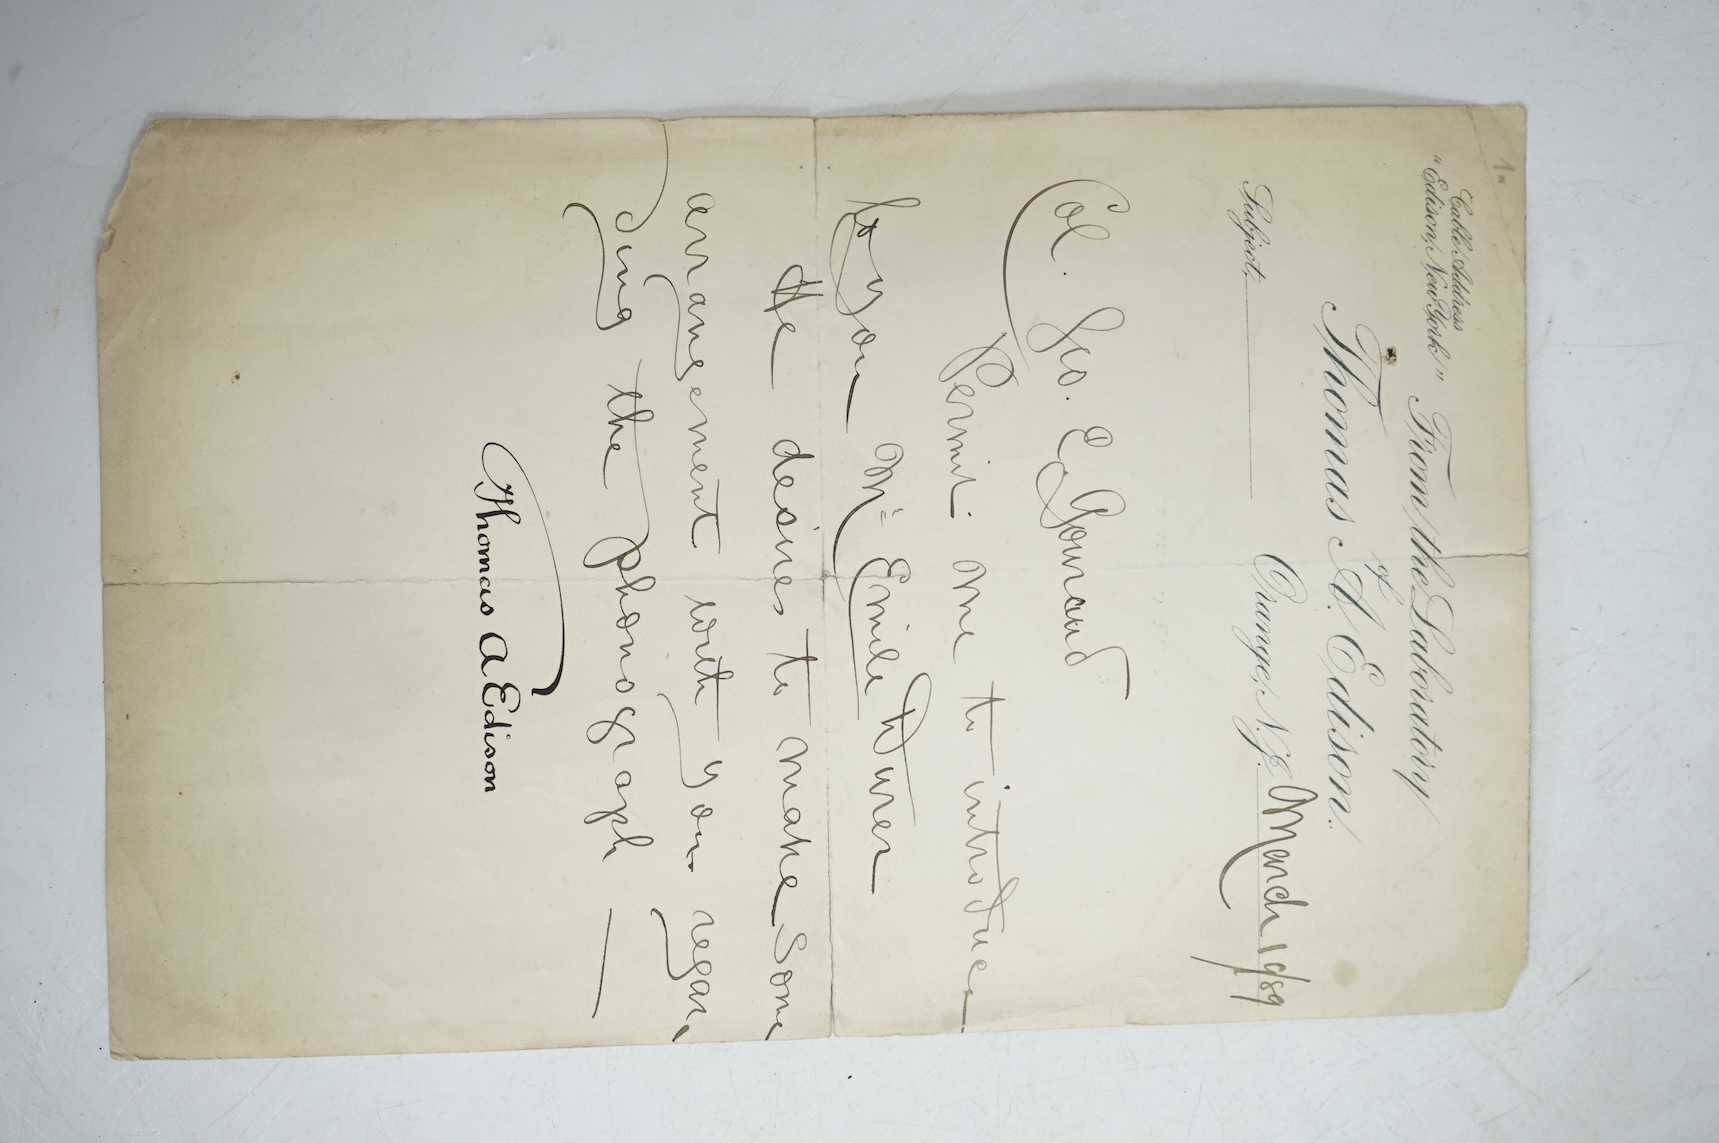 Cable Address
"Edison, New York"
From the Laboratory
of
Thomas A. Edison.
Subject,
Orange, N.J. March 19/89
Col. Geo. E. Gouraud
Permit me to introduce
to you Mr Emile Durer
He desires to make some
arrangement with you regar
ding the phonograph —
Thomas A Edison